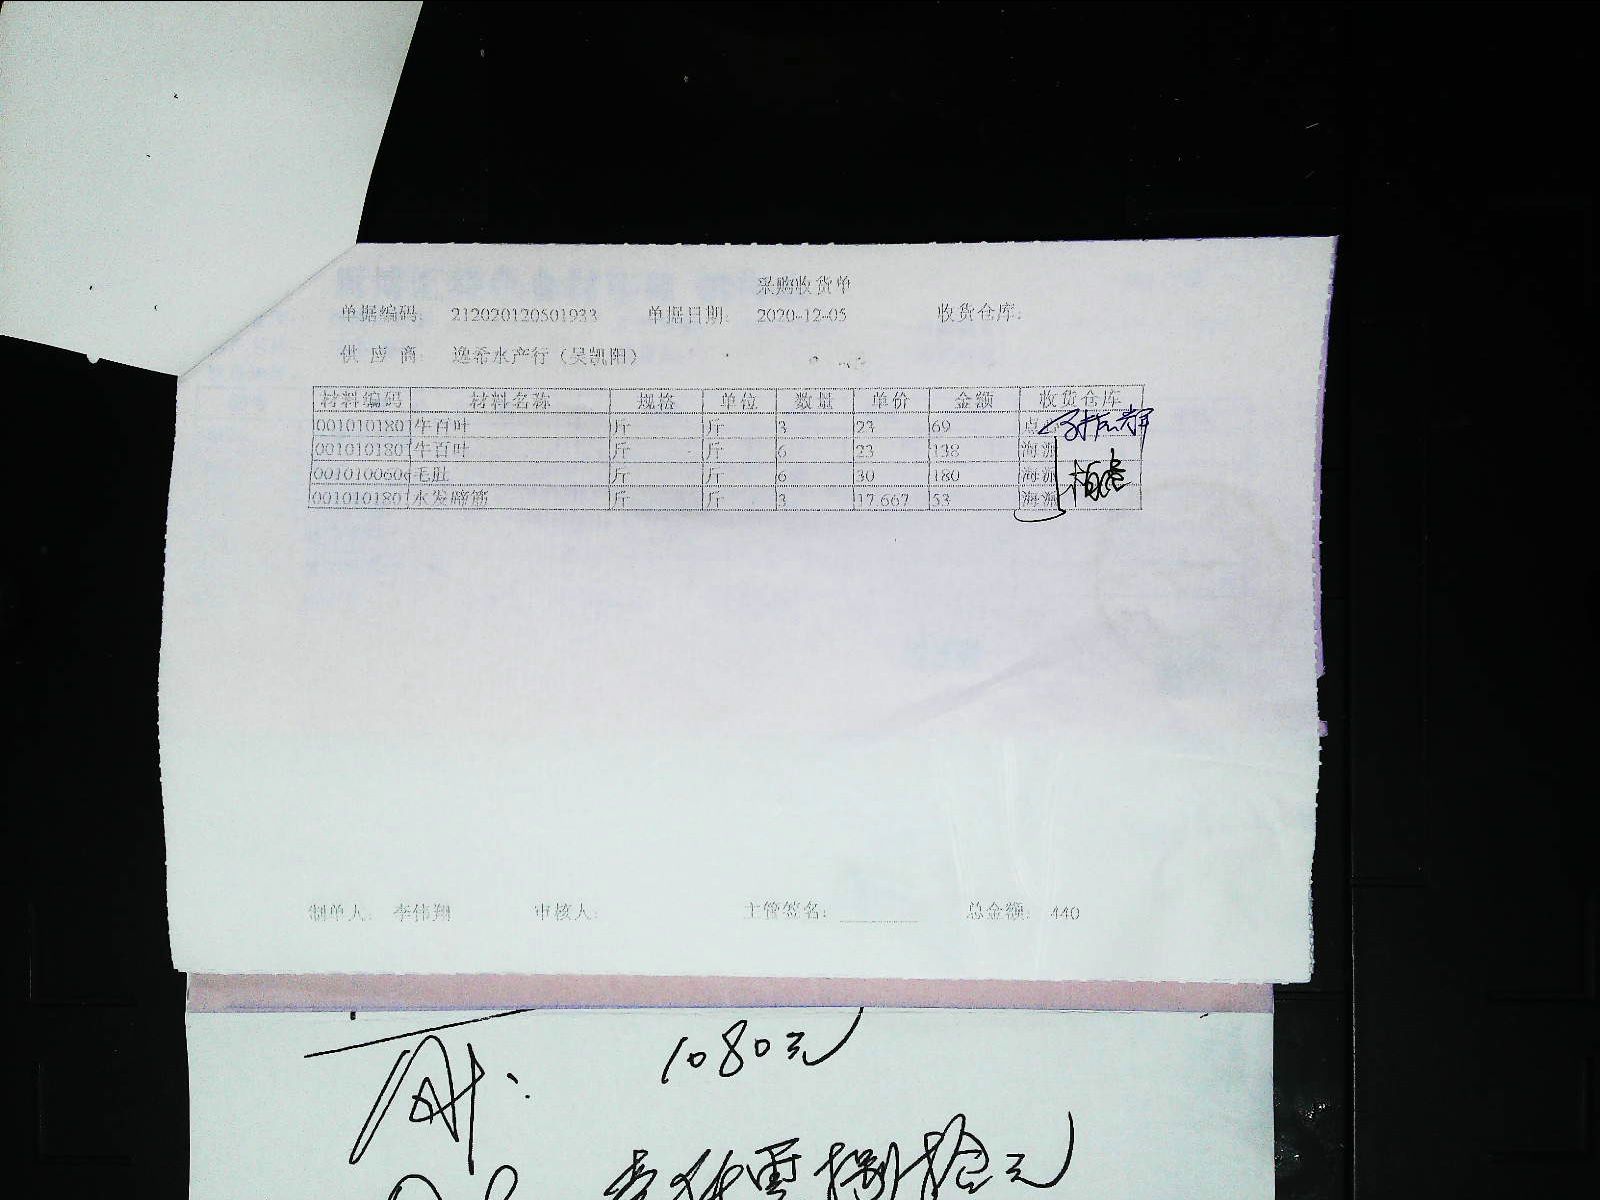 采购收货单
单据编码: 212020120501933 单据日期: 2020-12-05 收货仓库:
供 应 商: 逸希水产行（吴凯阳）
材料编码 材料名称 规格 单位 数量 单价 金额 收货仓库
0010101801 牛百叶 斤 斤 3 23 69 点
0010101801 牛百叶 斤 斤 6 23 138 海派
001010060 毛肚 斤 斤 6 30 180 海派
0010101801 水发蹄筋 斤 斤 3 17.667 53 海派
制单人: 李伟翔 审核人: 主管签名: 总金额: 440
1080元
零捌拾元